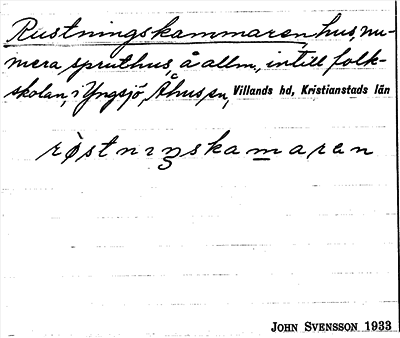 Rustningskammaren, hus, nu-
mera spruthus, å allm., intill folk-
skolan, i Yngsjö, Åhus sn, Villands hd, Kristianstads län
røstnıŋskamaran
JOHN SVENSSON 1933